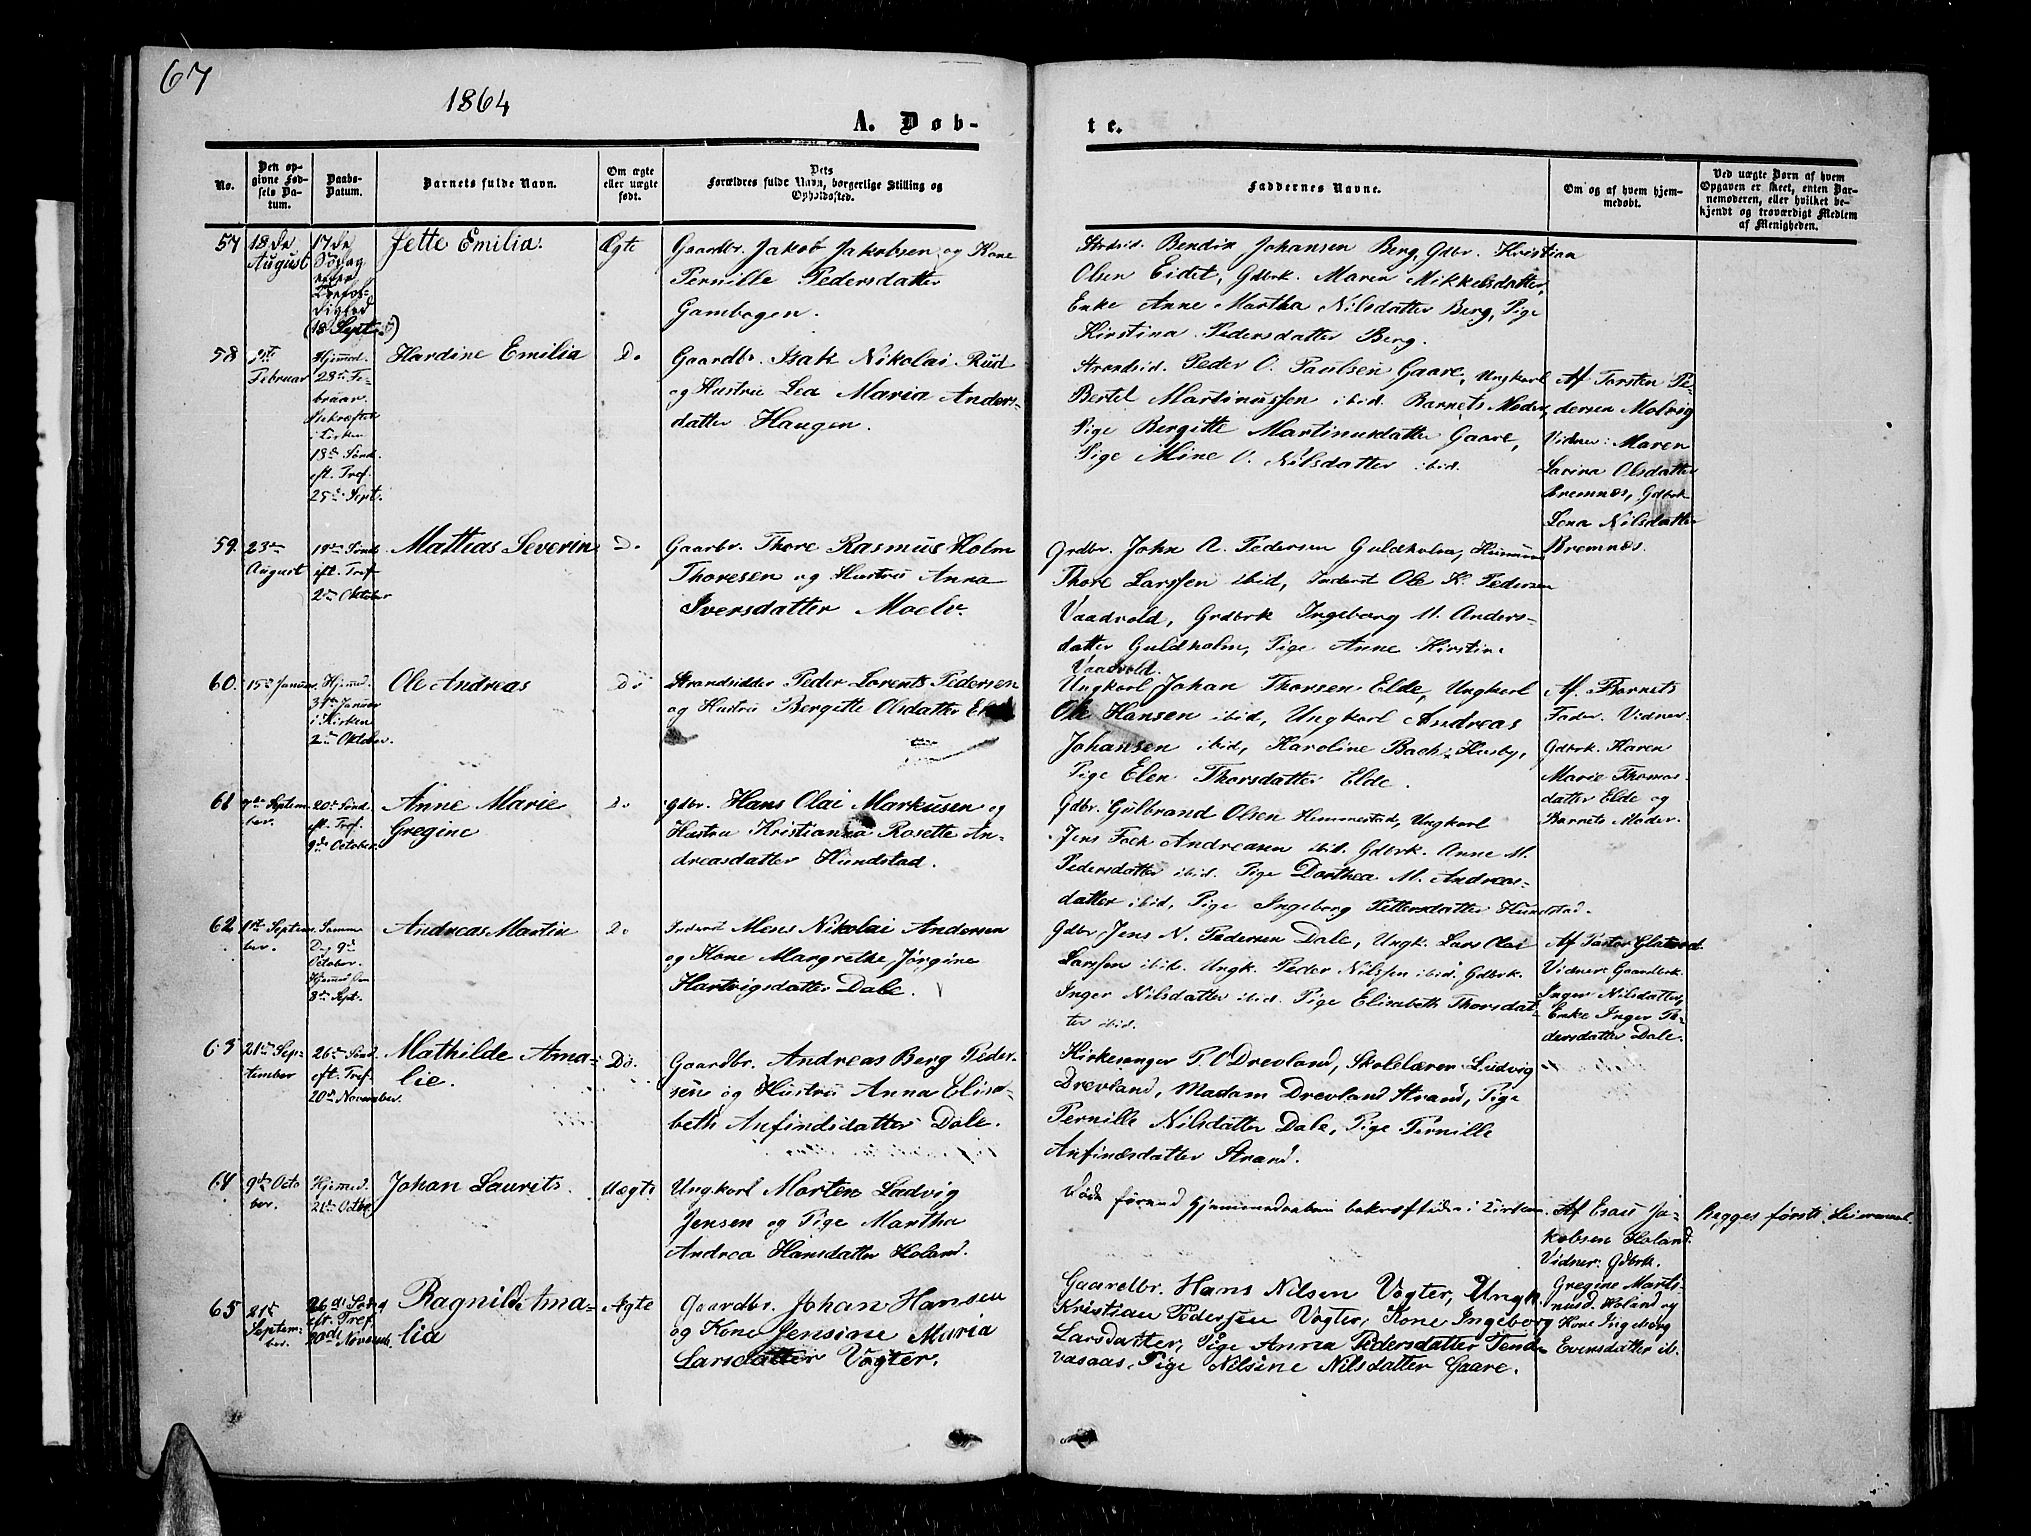 67
1864
A. Døb-
te.
No.
Den op-
givne Fød-
sels Da-
tum.
Daabs-
Datum.
Barnets fulde Navn.
Om ægte
eller uægte
født.
Dets
Forældres fulde Navn, borgerlige Stilling og
Opholdssted.
Faddernes Navne.
Om og af hvem hjem-
medøbt.
Ved uægte Børn af hvem
Opgaven er skeet, enten Bar-
nemoderen, eller hvilket be-
kjendt og troværdigt Medlem
af Menigheden.
57
18de
August
17de
Søndag
efter
Trefol-
dighed
(18 Septbr)
Jette Emilia.
Ægte
Gaardbr. Jakob Jakobsen og Kone
Pernille Pedersdatter
Gambogen.
Bendix Johansen Berg, Gdbr. Kristian
Olsen Eidet, Gdbrk. Maren Mikkelsdatter,
Enke Anne Martha Nilsdatter Berg, Pige
Kirstina Pedersdatter Berg.
58
Februar
Hjemmed.
28de Fe-
bruar.
Bekræftet
i Kirken
18de Sønd.
eft. Tref.
25de Sept.
Hardine Emilia
Do
Gaardbr. Isak Nikolai Rud
og Hustru Lea Maria Anders-
datter Haugen.
Strandsid. Peder O. Paulsen Gaare, Ungkarl
Bertel Martinussen ibid. Barnets Moder,
Pige Bergitte Martinusdatter Gaare,
Pige Mine O. Nilsdatter ibid.
Af Torsten Pe-
dersen Molvig
Vidner: Maren
Larina Olsdatter
Bremnæs, Gdbrk
Lena Nilsdatter
Bremnæs.
59.
23de
August
19de Sønd
eft. Tref
2den Oktober
Mattias Severin
Do
Gaarbr. Thore Rasmus Holm
Thoresen og Hustru Anna
Iversdatter Moelv.
Grdbr. John A. Pedersen Guldholm, Huusmand
Thore Larssen ibid, Inderst Ole K. Pedersen
Vaadvold, Grdbrk Ingeborg M. Anders-
datter Guldholm, Pige Anne Kirstine
Vaadvold.
60.
15de Januar.
Hjemmed.
31te Januar
i Kirken
2den Oktober.
Ole Andreas
Do
Strandsidder Peder Lorents Pedersen
og Hustru Bergitte Olsdatter
Ungkarl Johan Thorsen Elde, Ungkarl
Ole Hansen ibid, Ungkarl Andreas
Johansen ibid, Karoline Bach Husby,
Pige Elen Thorsdatter Elde.
Af Barnets
Fader. Vidner
Gdbrk. Karen
Marie Thomas-
datter Elde og
Barnets Moder.
61
7de Septem-
ber.
20de Sønd.
eft. Tref.
9de October.
Anne Marie
Gregine
Do
Gdbr. Hans Olai Markusen og
Hustru Kristianna Rosette An-
dreasdatter Hundstad.
Gdbr. Gulbrand Olsen Hemmestad, Ungkarl
Jens Falk Andreasen ibid. Gdbrk. Anne M.
Pedersdatter ibid. Pige Dorthea M. Andreas-
datter ibid, Pige Ingeborg Pettersdatter Hundstad.
62
1ste Septem-
ber.
Samme
Dag 9de
October.
Hjemmedøbt
8de Sept.
Andreas Martin
Do
Inderst Mens Nikolai Andersen
og Kone Margrethe Jørgine
Hartvigsdatter Dale.
Gdbr. Jens N. Pedersen Dale, Ungk. Lars Olai
Larssen ibid. Ungk. Peder Nilssen ibid. Gdbrk.
Inger Nilsdatter ibid. Pige Elisabeth Thorsdat-
ter ibid.
Af Pastor Glaterud.
Vidner: Gaardbrk.
Inger Nilsdatter,
Enke Inger Pe-
dersdatter Dale.
63
21de Sep-
tember
26de Sønd
eft. Tref.
20de November.
Mathilde Ama-
lie.
Do.
Gaardbr. Andreas Berg Peder-
sen og Hustru Anna Elisa-
beth Anfindsdatter Dale.
Kirkesanger P. O Drevland, Skolelærer Ludvig
Drevland, Madam Drevland Strand, Pige
Pernille Nilsdatter Dale, Pige Pernille
Anfindsdatter Strand.
64
9de Octo-
ber.
Hjemmed.
21de Octbr
Johan Laurits.
Uægte
Ungkarl Morten Ludvig
Jensen og Pige Martha
Andrea Hansdatter Holand.
Døde førend Hjemmedaaben bekræftedes i Kirken.
Af Esau Ja-
kobsen Holand.
Vidner: Gdbrk.
Gregine Marti-
nusd. Holand og
Kone Ingeborg
Evensdatter ib.
Begges første Leiermaal.
65
21de
Septem-
ber.
26de Sønd
eftr. Tref
20de Novemb.
Ragnild Ama-
lia
Ægte
Gaardbr. Johan Hansen
og Kone Jensine Maria
Larsdatter Vogter.
Gaardbr. Hans Nilsen Vogter, Ungk.
Kristian Pedersen Vogter, Kone Ingeborg
Larsdatter, Pige Anna Pedersdatter Tend-
vasaas, Pige Nilsine Nilsdatter Gaare.